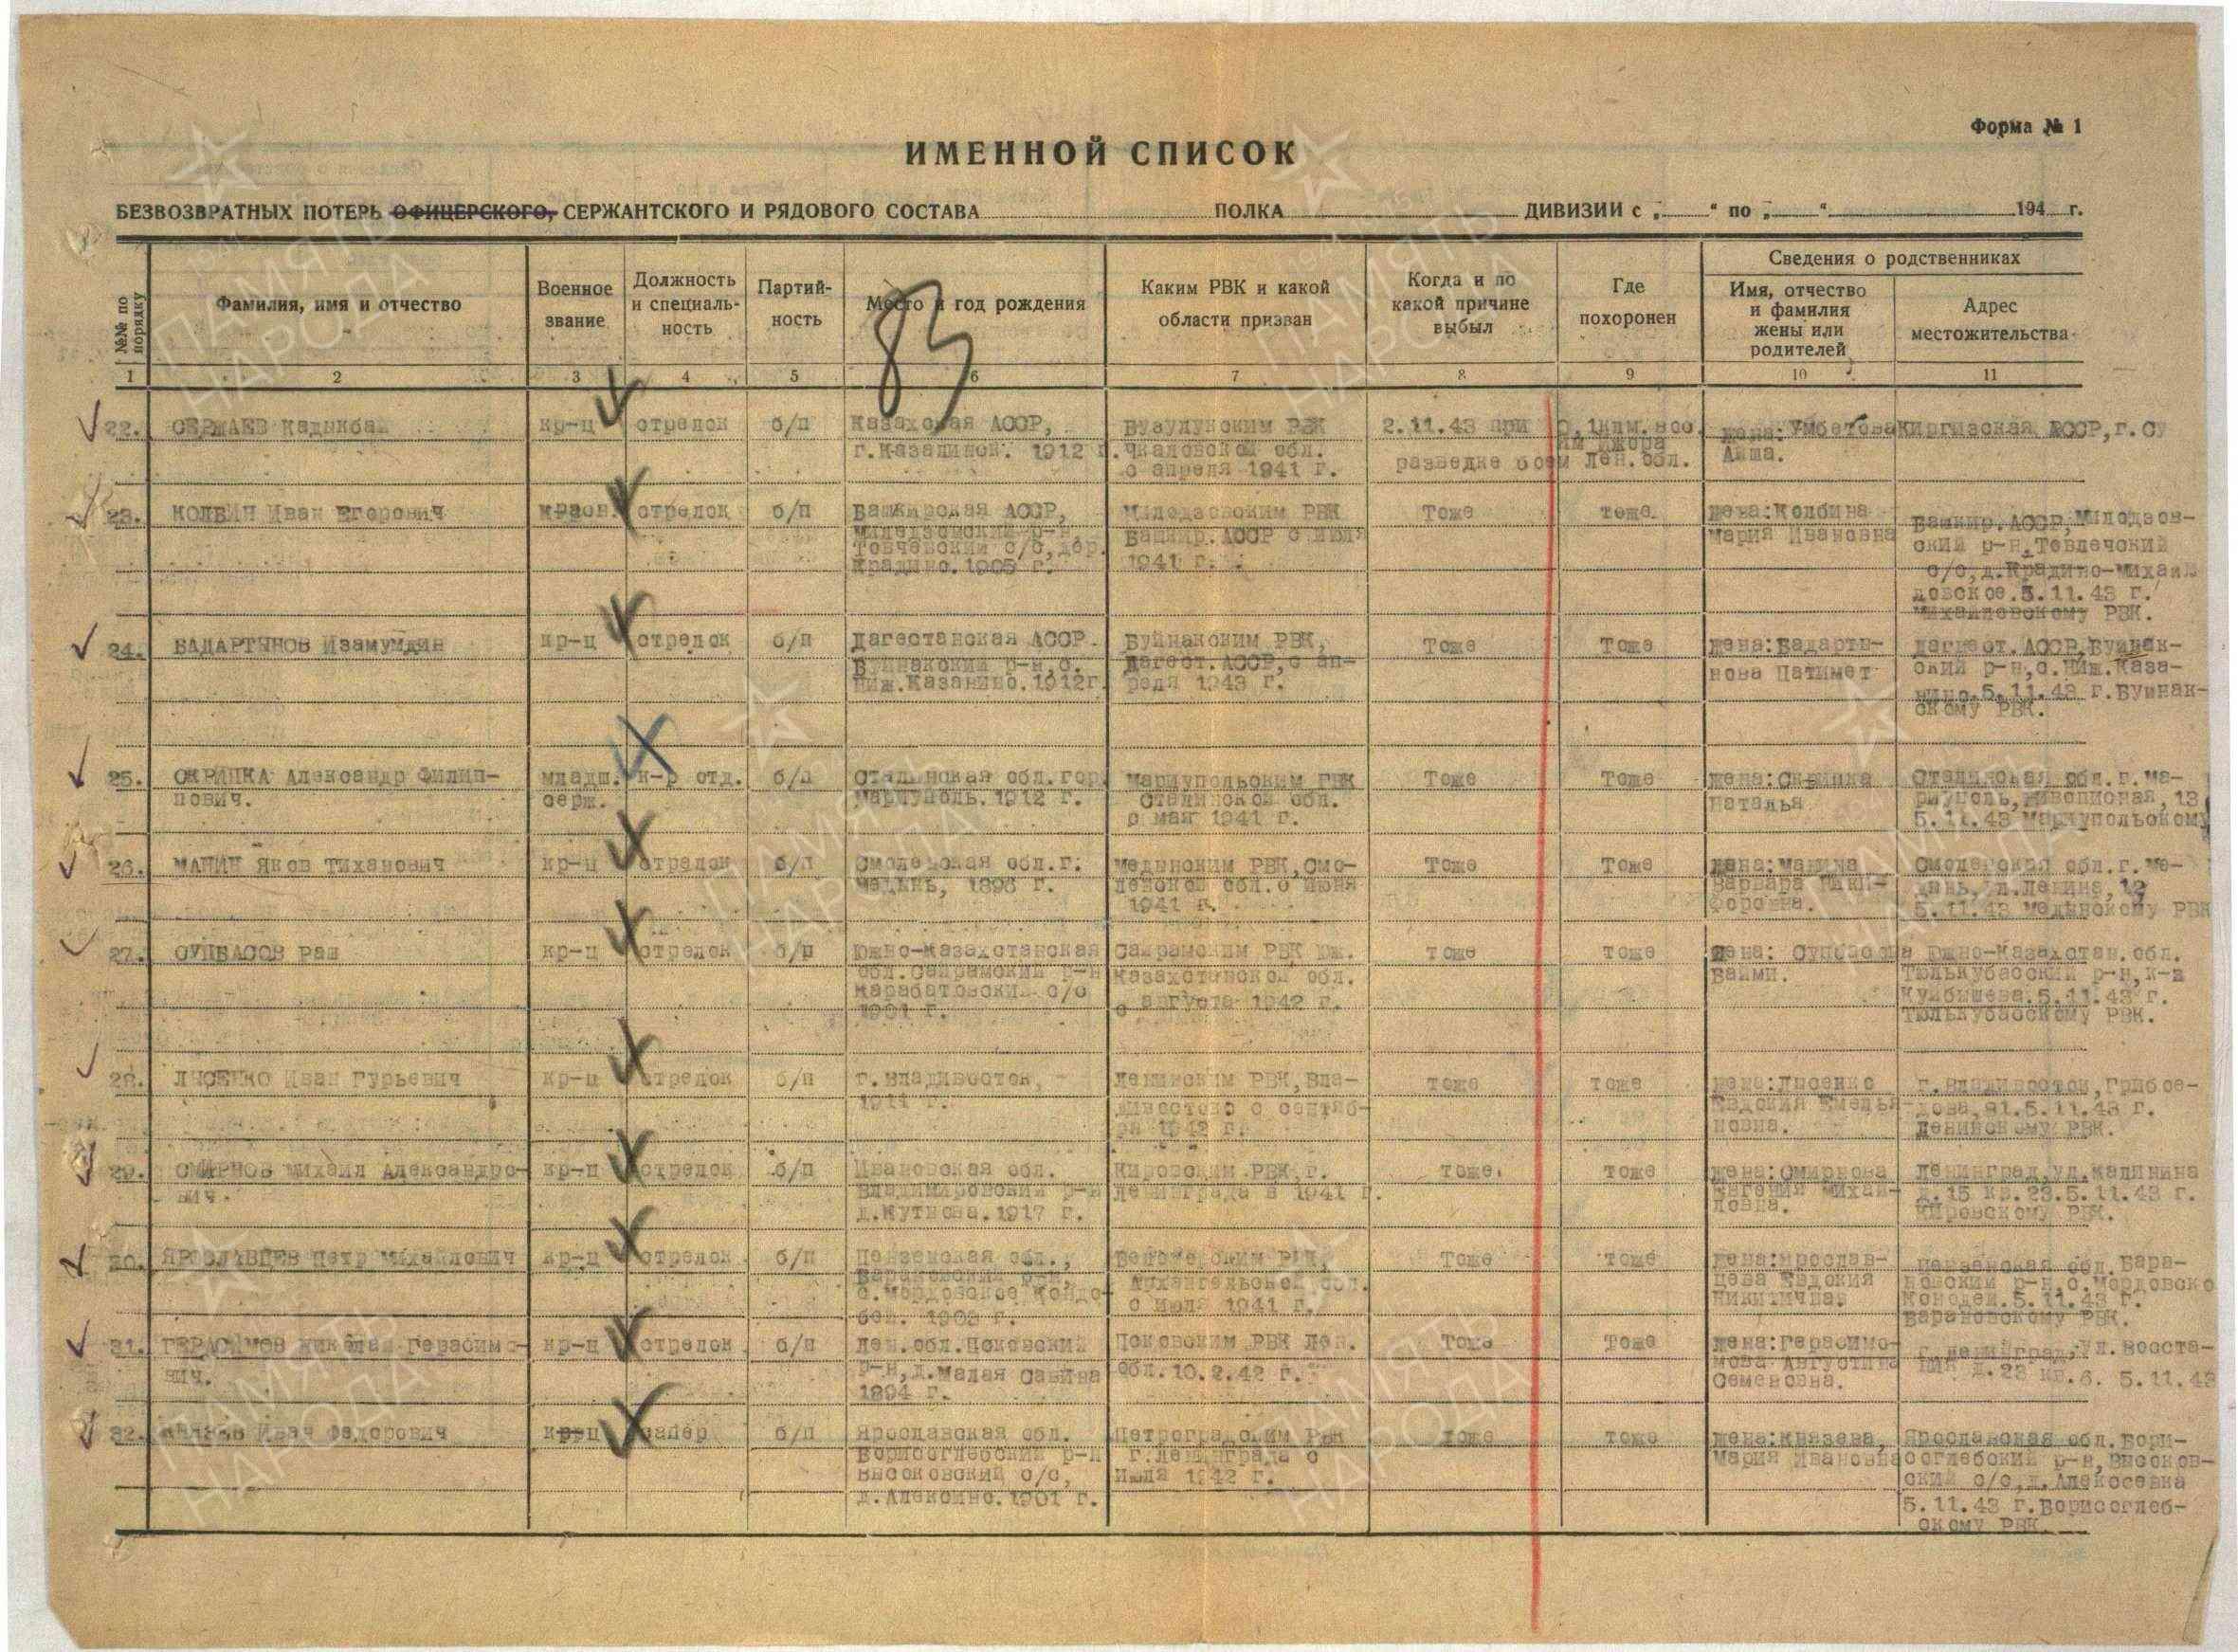 Форма № 1
ИМЕННОЙ СПИСОК
БЕЗВОЗВРАТНЫХ ПОТЕРЬ ОФИЦЕРСКОГО, СЕРЖАНТСКОГО И РЯДОВОГО СОСТАВА ПОЛКА ДИВИЗИИ с „ “ по „ “ 194 г.
№№ по порядку
Фамилия, имя и отчество
Военное звание
Должность и специаль-ность
Партий-ность
Место и год рождения
Каким РВК и какой области призван
Когда и по какой причине выбыл
Где похоронен
Сведения о родственниках
Имя, отчество и фамилия жены или родителей
Адрес местожительства
1 2 3 4 5 6 7 8 9 10 11
83
22. СЕРЖАЕВ кр-ц стрелок б/п Казахская АССР, Бузулукским РВК 2.11.43 при жена: Умбетова Киргизская АССР, г.
г. Казалинск. 1912 г. Чкаловской обл. разведке боем Лен. обл. Айша.
с апреля 1941 г.
23. КОЛБИН Иван Егорович красн. стрелок б/п Башкирская АССР, РВК Тоже тоже жена: Колбина Башкир. АССР,
р-н, Башкир. АССР с июля Мария Ивановна ский р-н,
с/с, дер. 1941 г. с/с, д. Крадино-Михай
Крадыно. 1905 г. ловское. 5.11.43 г.
Михайловскому РВК.
24. БАДАРТЫНОВ кр-ц стрелок б/п Дагестанская АССР. Буйнакским РВК, Тоже Тоже жена: Бадарты- Дагест. АССР, Буйнак-
Буйнакский р-н, с. Дагест. АССР, с ап- нова Патимет ский р-н, с. Ниж. Каза-
Ниж. Казанище. 1912 г. реля 1943 г. нище. 5.11.43 г. Буйнак-
скому РВК.
25. СКРИПКА Александр Филип- младш. к-р отд. б/п Сталинская обл. гор. Мариупольским РВК Тоже Тоже жена: Скрипка Сталинская обл. г. Ма-
пович. серж. Мариуполь. 1912 г. Сталинской обл. Наталья риуполь, Живописная, 13
с мая 1941 г. 5.11.43 Мариупольскому
26. МАНИН Яков Тиханович кр-ц стрелок б/п Смоленская обл. г. Медынским РВК, Смо- Тоже Тоже жена: Манина Смоленская обл. г. Ме-
Медынь, 1898 г. ленской обл. с июня Варвара Ники- дынь, ул. Ленина, 12
1941 г. форовна. 5.11.43 Медынскому РВК
27. СУЛБАСОВ Раш кр-ц стрелок б/п Южно-Казахстанская Сайрамским РВК Юж. тоже тоже жена: Южно-Казахстан. обл.
обл. Сайрамский р-н Казахстанской обл. Баими. Тюлькубасский р-н, к-з
Карабатовский с/с с августа 1942 г. Куйбышева. 5.11.43 г.
1901 г. Тюлькубасскому РВК.
28. ЛЫСЕНКО Иван Гурьевич кр-ц стрелок б/п г. Владивосток, Ленинским РВК, Вла- тоже тоже жена: Лысенко г. Владивосток, Грибое-
1911 г. дивостока с сентяб- Евдокия Емелья дова, 91. 5.11.43 г.
ря 1942 г. новна. Ленинскому РВК.
29. СМИРНОВ Михаил Александро- кр-ц стрелок б/п Ивановская обл. Кировским РВК, г. тоже тоже жена: Смирнова Ленинград, ул. Калинина
вич. Владимировский р-н Ленинграда в 1941 г. Евгения Михай- д. 15 кв. 23. 5.11.43 г.
д. Кутнева. 1917 г. ловна. Кировскому РВК.
30. ЯРОСЛАВЦЕВ Петр Михайлович кр-ц стрелок б/п Пензенская обл., РВК, Тоже тоже жена: Ярослав- Пензенская обл. Бара-
р-н, Архангельской обл. цева Евдокия новский р-н, с. Мордовско
с. Мордовское с июля 1941 г. Никитична. 5.11.43 г.
1903 г. Барановскому РВК.
31. ГЕРАСИМОВ Николай Герасимо- кр-ц стрелок б/п Лен. обл. Псковский Псковским РВК Лен. Тоже Тоже жена: Герасимо- г. Ленинград, ул. Восста-
вич. р-н, д. Малая Савина обл. 10.2.42 г. мова Августина ния д. 23 кв. 6. 5.11.43
1894 г. Семеновна.
32. КНЯЗЕВ Иван Федорович кр-ц сапер б/п Ярославская обл. Петроградским РВК тоже тоже жена: Князева, Ярославская обл. Бори-
Борисоглебский р-н г. Ленинграда с Мария Ивановна соглебский р-н, Высоков-
Высоковский с/с, Июля 1942 г. ский с/с, д. Алексеевка
д. Алексино. 1901 г. 5.11.43 г. Борисоглеб-
скому РВК.
ПАМЯТЬ НАРОДА